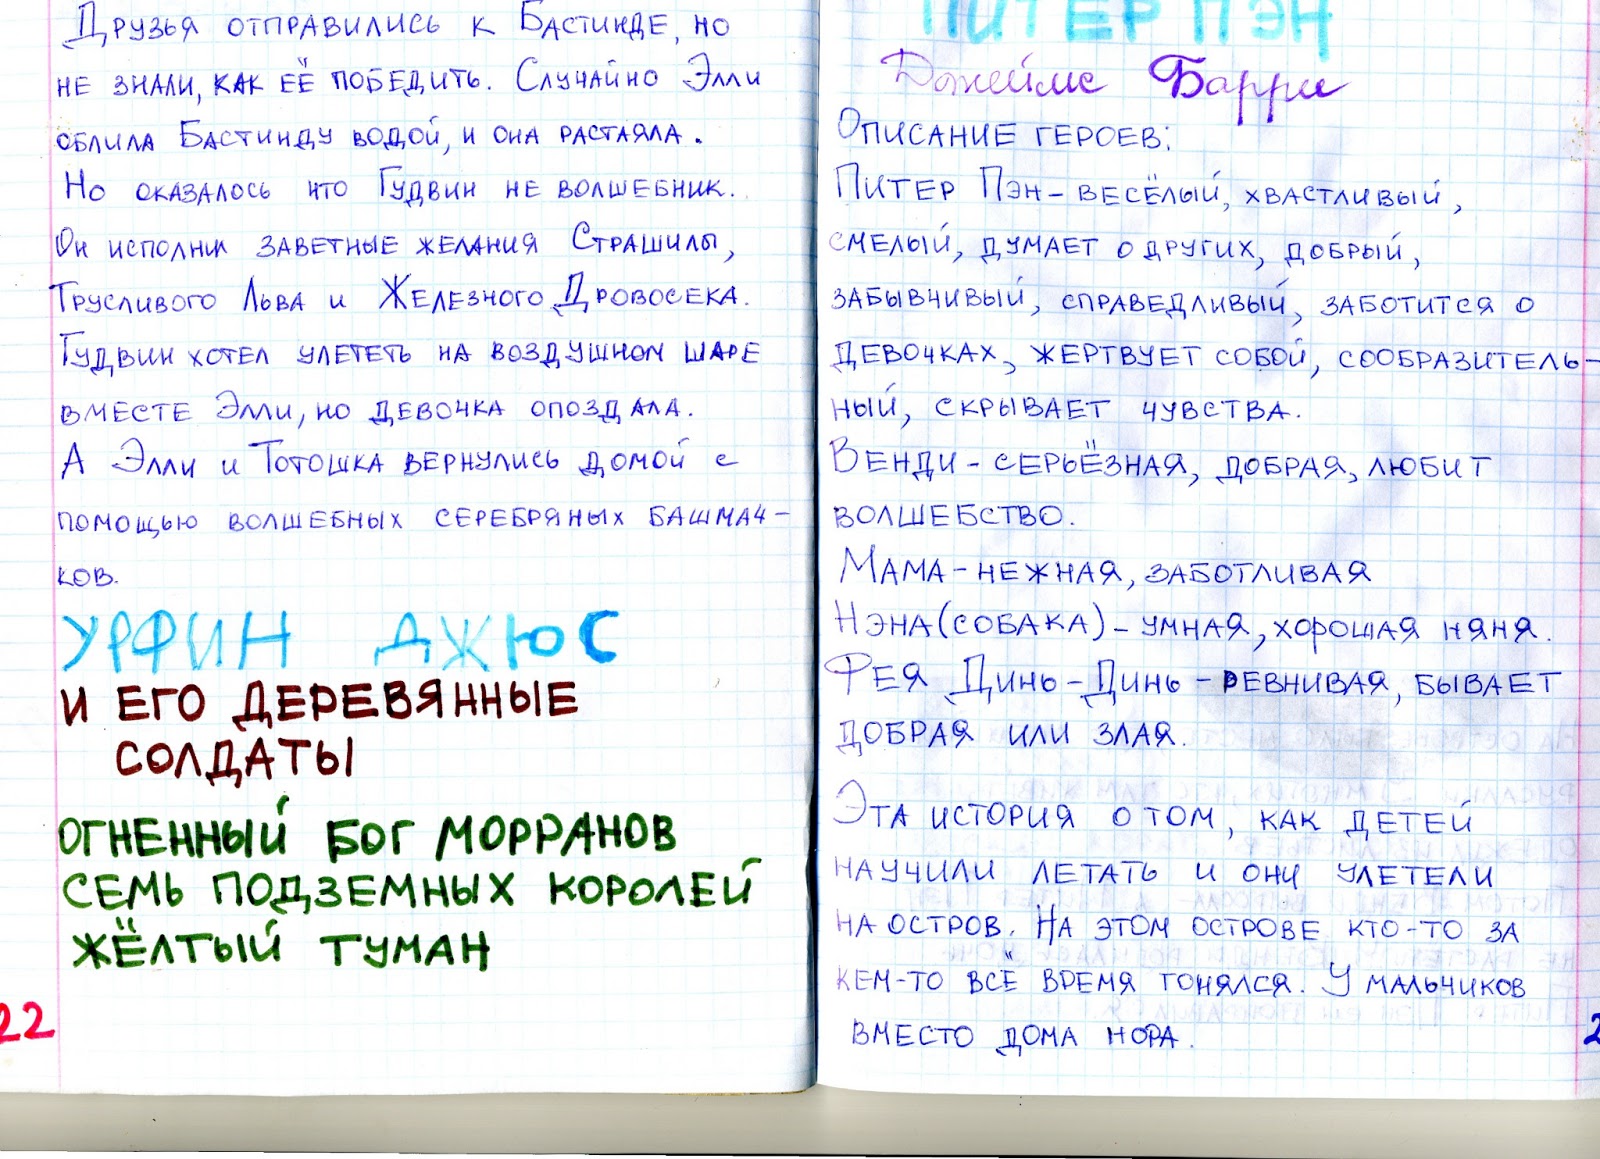 Друзья отправились к Бастинде, но
не знали, как её победить. Случайно Элли
облила Бастинду водой, и она растаяла.
Но оказалось что Гудвин не волшебник.
Он исполнил заветные желания Страшилы,
Трусливого Льва и Железного Дровосека.
Гудвин хотел улететь на воздушном шаре
вместе Элли, но девочка опоздала.
А Элли и Тотошка вернулись домой с
помощью волшебных серебряных башмач-
ков.
УРФИН ДЖЮС
И ЕГО ДЕРЕВЯННЫЕ
СОЛДАТЫ
ОГНЕННЫЙ БОГ МОРРАНОВ
СЕМЬ ПОДЗЕМНЫХ КОРОЛЕЙ
ЖЁЛТЫЙ ТУМАН
22
ПИТЕР ПЭН
Джеймс Барри
Описание героев:
Питер Пэн - весёлый, хвастливый,
смелый, думает о других, добрый,
забывчивый, справедливый, заботится о
девочках, жертвует собой, сообразитель-
ный, скрывает чувства.
Венди - серьёзная, добрая, любит
волшебство.
Мама - нежная, заботливая
Нэна (собака) - умная, хорошая няня.
Фея Динь-Динь - ревнивая, бывает
добрая или злая.
Эта история о том, как детей
научили летать и они улетели
на остров. На этом острове кто-то за
кем-то всё время гонялся. У мальчиков
вместо дома нора.
2